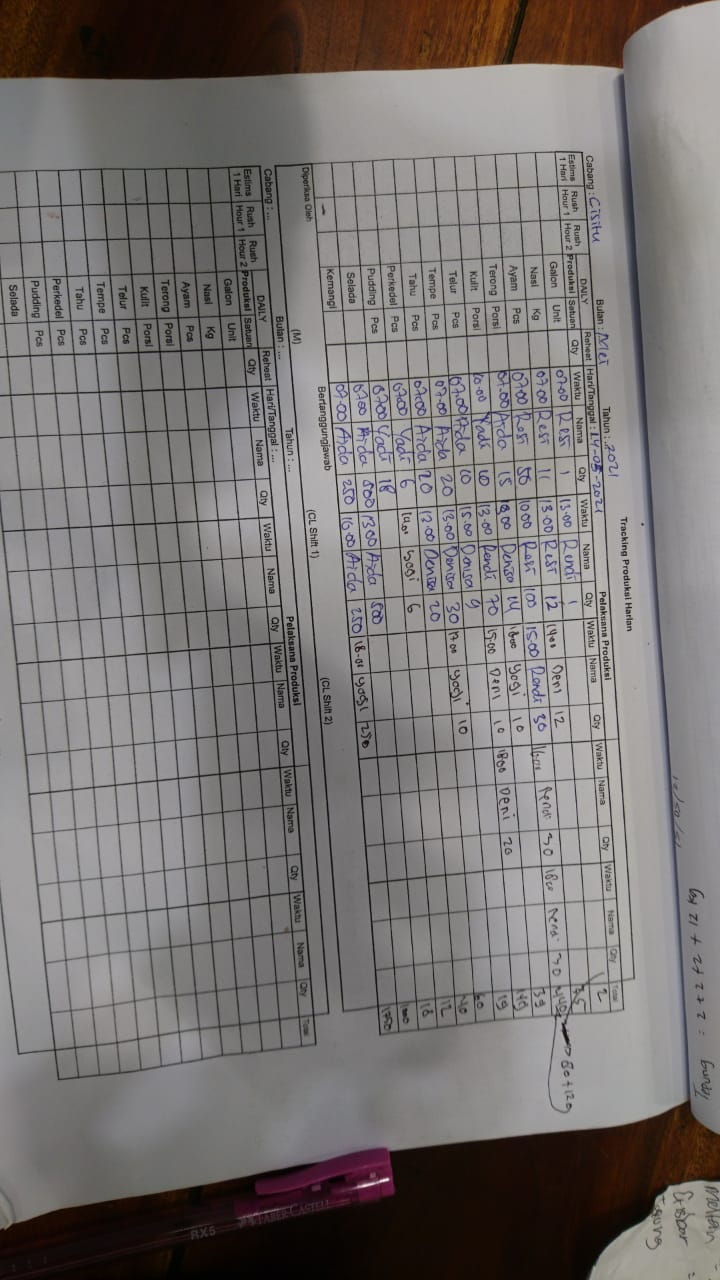 Tracking Produksi Harian
Cabang : Cisitu Bulan : Mei Tahun : 2021 Pelaksana Produksi
Estims 1 Hari Rush Hour 1 Rush Hour 2 DAILY Produksi Satuan Reheat Qty Hari/Tanggal : 24-05-2021
Waktu Nama Qty Waktu Nama Qty Waktu Nama Qty Waktu Nama Qty Waktu Nama Qty Total
Galon Unit 07.00 Resi 1 13.00 Rendi 1 2
Nasi Kg 07.00 Resi 11 13.00 Resi 12 Deni 12 35
Ayam Pcs 07.00 Resi 50 10.00 Resi 100 15.00 Rendi 30 Rendi 30 18.00 Rendi 30 → 80 + 120
Terong Porsi 07.00 Aida 15 Denisa 14 18.00 Yogi 10 39
Kulit Porsi Yadi 10 13.00 Rendi 70 15.00 Deni 10 18.00 Deni 20
Telur Pcs 07.00 Aida 10 15.00 Denisa 9 19
Tempe Pcs 07.00 Aida 20 13.00 Denisa 30 17.00 Yogi 10 60
Tahu Pcs 07.00 Aida 20 12.00 Denisa 20 40
Perkedel Pcs 07.00 Yadi 6 Yogi 6 12
Pudding Pcs 07.00 Yadi 18 18
Selada 07.00 Aida 500 13.00 Aida 500
Kemangi 07.00 Aida 250 16.00 Aida 250 18.00 Yogi 250
Diperiksa Oleh Bertanggungjawab
(M) (CL Shift 1) (CL Shift 2)
Cabang : ... Bulan : ... Tahun : ... Pelaksana Produksi
Estims 1 Hari Rush Hour 1 Rush Hour 2 DAILY Produksi Satuan Reheat Qty Hari/Tanggal : ...
Waktu Nama Qty Waktu Nama Qty Waktu Nama Qty Waktu Nama Qty Waktu Nama Qty Total
Galon Unit
Nasi Kg
Ayam Pcs
Terong Porsi
Kulit Porsi
Telur Pcs
Tempe Pcs
Tahu Pcs
Perkedel Pcs
Pudding Pcs
Selada
FABER-CASTELL
RX5